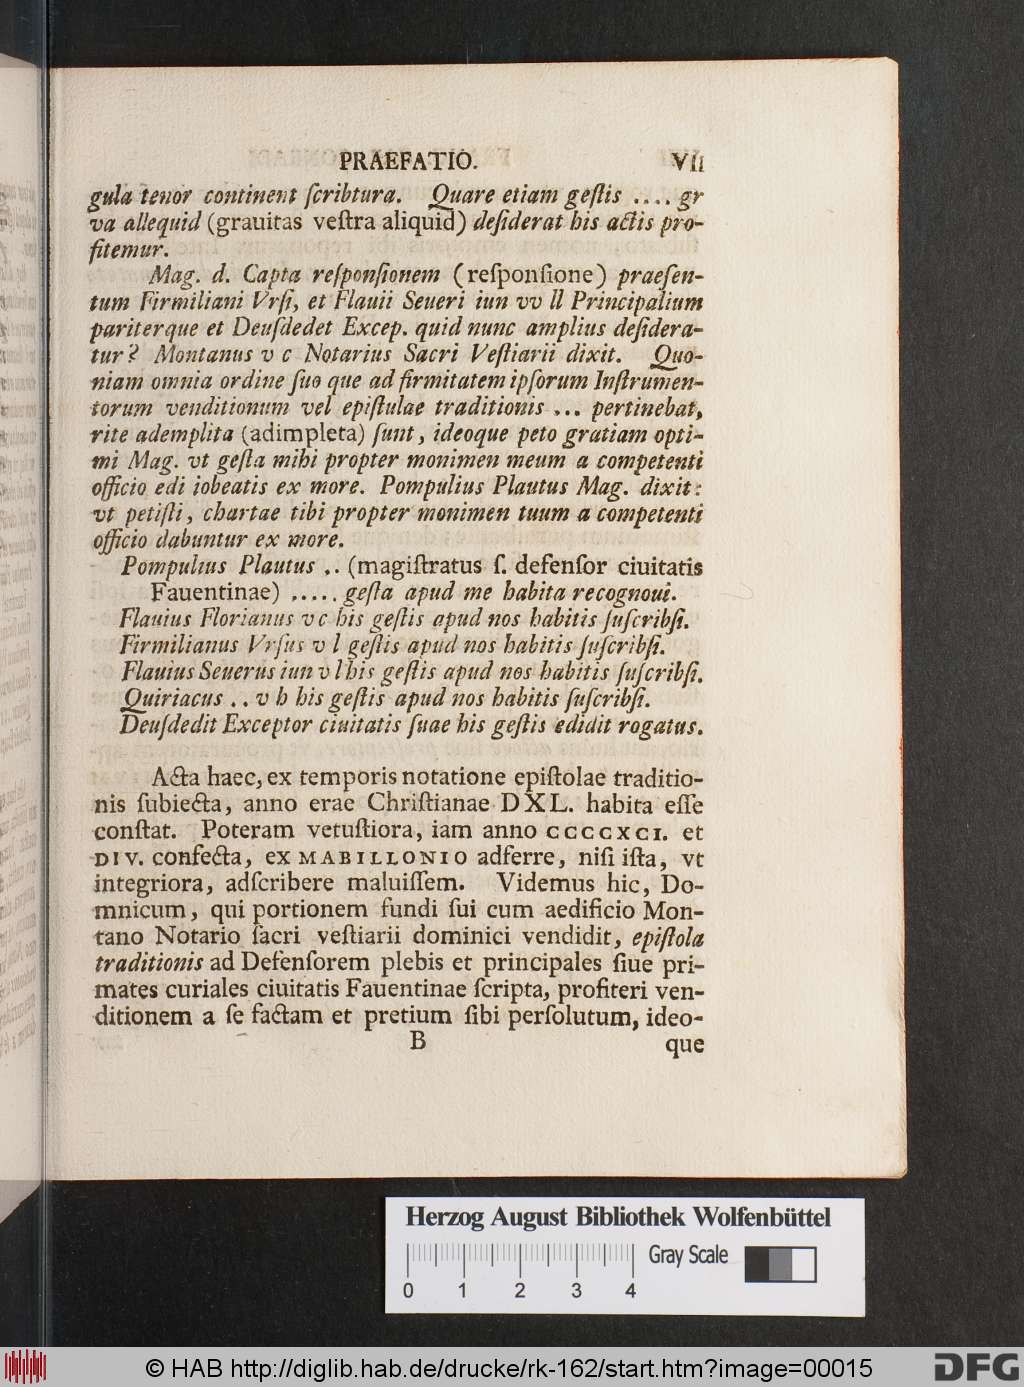 PRAEFATIO. VII
gula tenor continent ſcribtura. Quare etiam geſtis .... gr
va allequid (grauitas veſtra aliquid) deſiderat his actis pro-
fitemur.
Mag. d. Capta reſponſionem (reſponſione) praeſen-
tum Firmiliani Vrſi, et Flauii Seueri iun vv ll Principalium
pariterque et Deuſdedet Excep. quid nunc amplius deſidera-
tur? Montanus v c Notarius Sacri Veſtiarii dixit. Quo-
niam omnia ordine ſuo que ad firmitatem ipſorum Inſtrumen-
torum venditionum vel epiſtulae traditionis ... pertinebat,
rite ademplita (adimpleta) ſunt, ideoque peto gratiam opti-
mi Mag. vt geſta mihi propter monimen meum a competenti
officio edi iobeatis ex more. Pompulius Plautus Mag. dixit:
vt petiſti, chartae tibi propter monimen tuum a competenti
officio dabuntur ex more.
Pompulius Plautus .. (magiſtratus ſ. defenſor ciuitatis
Fauentinae) ..... geſta apud me habita recognoui.
Flauius Florianus v c his geſtis apud nos habitis ſuſcribſi.
Firmilianus Vrſus v l geſtis apud nos habitis ſuſcribſi.
Flauius Seuerus iun v l his geſtis apud nos habitis ſuſcribſi.
Quiriacus .. v h his geſtis apud nos habitis ſuſcribſi.
Deuſdedit Exceptor ciuitatis ſuae his geſtis edidit rogatus.
Acta haec, ex temporis notatione epiſtolae traditio-
nis ſubiecta, anno erae Chriſtianae DXL. habita eſſe
conſtat. Poteram vetuſtiora, iam anno CCCCXCI. et
DIV. confecta, ex MABILLONIO adferre, niſi iſta, vt
integriora, adſcribere maluiſſem. Videmus hic, Do-
mnicum, qui portionem fundi ſui cum aedificio Mon-
tano Notario ſacri veſtiarii dominici vendidit, epiſtola
traditionis ad Defenſorem plebis et principales ſiue pri-
mates curiales ciuitatis Fauentinae ſcripta, profiteri ven-
ditionem a ſe factam et pretium ſibi perſolutum, ideo-
B que
Herzog August Bibliothek Wolfenbüttel
Gray Scale
0 1 2 3 4
© HAB http://diglib.hab.de/drucke/rk-162/start.htm?image=00015
DFG